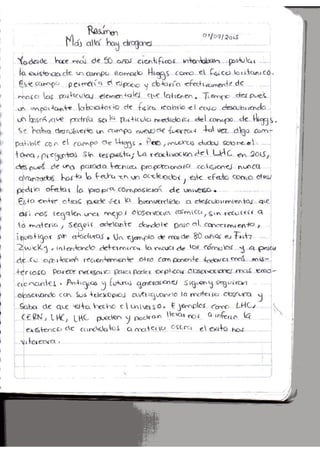 Resumen
Más allá hay dragones
01/07/2015
Ya desde hace más de 50 años científicos intentaban postular
la existencia de un campo llamado Higgs como el físico
Este campo el espacio y efectivamente de
masa las partículas elementales que la tienen. Tiempo después
un importante laboratorio de física descubriendo
un bosón, que podría ser la partícula mediadora del campo de Higgs.
Se había descubierto un campo nuevo de fuerzas tal vez algo com-
patible con el campo de Higgs. Pero, muchas dudas sobre el
tema, preguntas sin respuesta, La reactivación del LHC en 2015,
después de una parada técnica proporcionaría colisiones nunca
alcanzadas hasta la fecha en un acelerador, este efecto como
podría la propia composición de universo.
Esta entre otras puede ser la bienvenida a descubrimientos que
así nos regalen una mejor cósmica, sin recurrir a
la materia, seguir adelante
investigar por Un ejemplo de más de 80 años es Fritz
Zwicky, intentando determinar la masa de los cúmulos y a pesar
de su recientemente otro componente todavía más mis-
terioso parece necesario para poder explicar observaciones más
Antiguas y futuras generaciones siguen y seguirán
observando con sus telescopios la materia oscura y
de que está hecho el universo. Ejemplos como LHC,
CERN, LHC, LHC pueden y podrán llevarnos a inferir la
existencia de candidatos a materia oscura el éxito nos